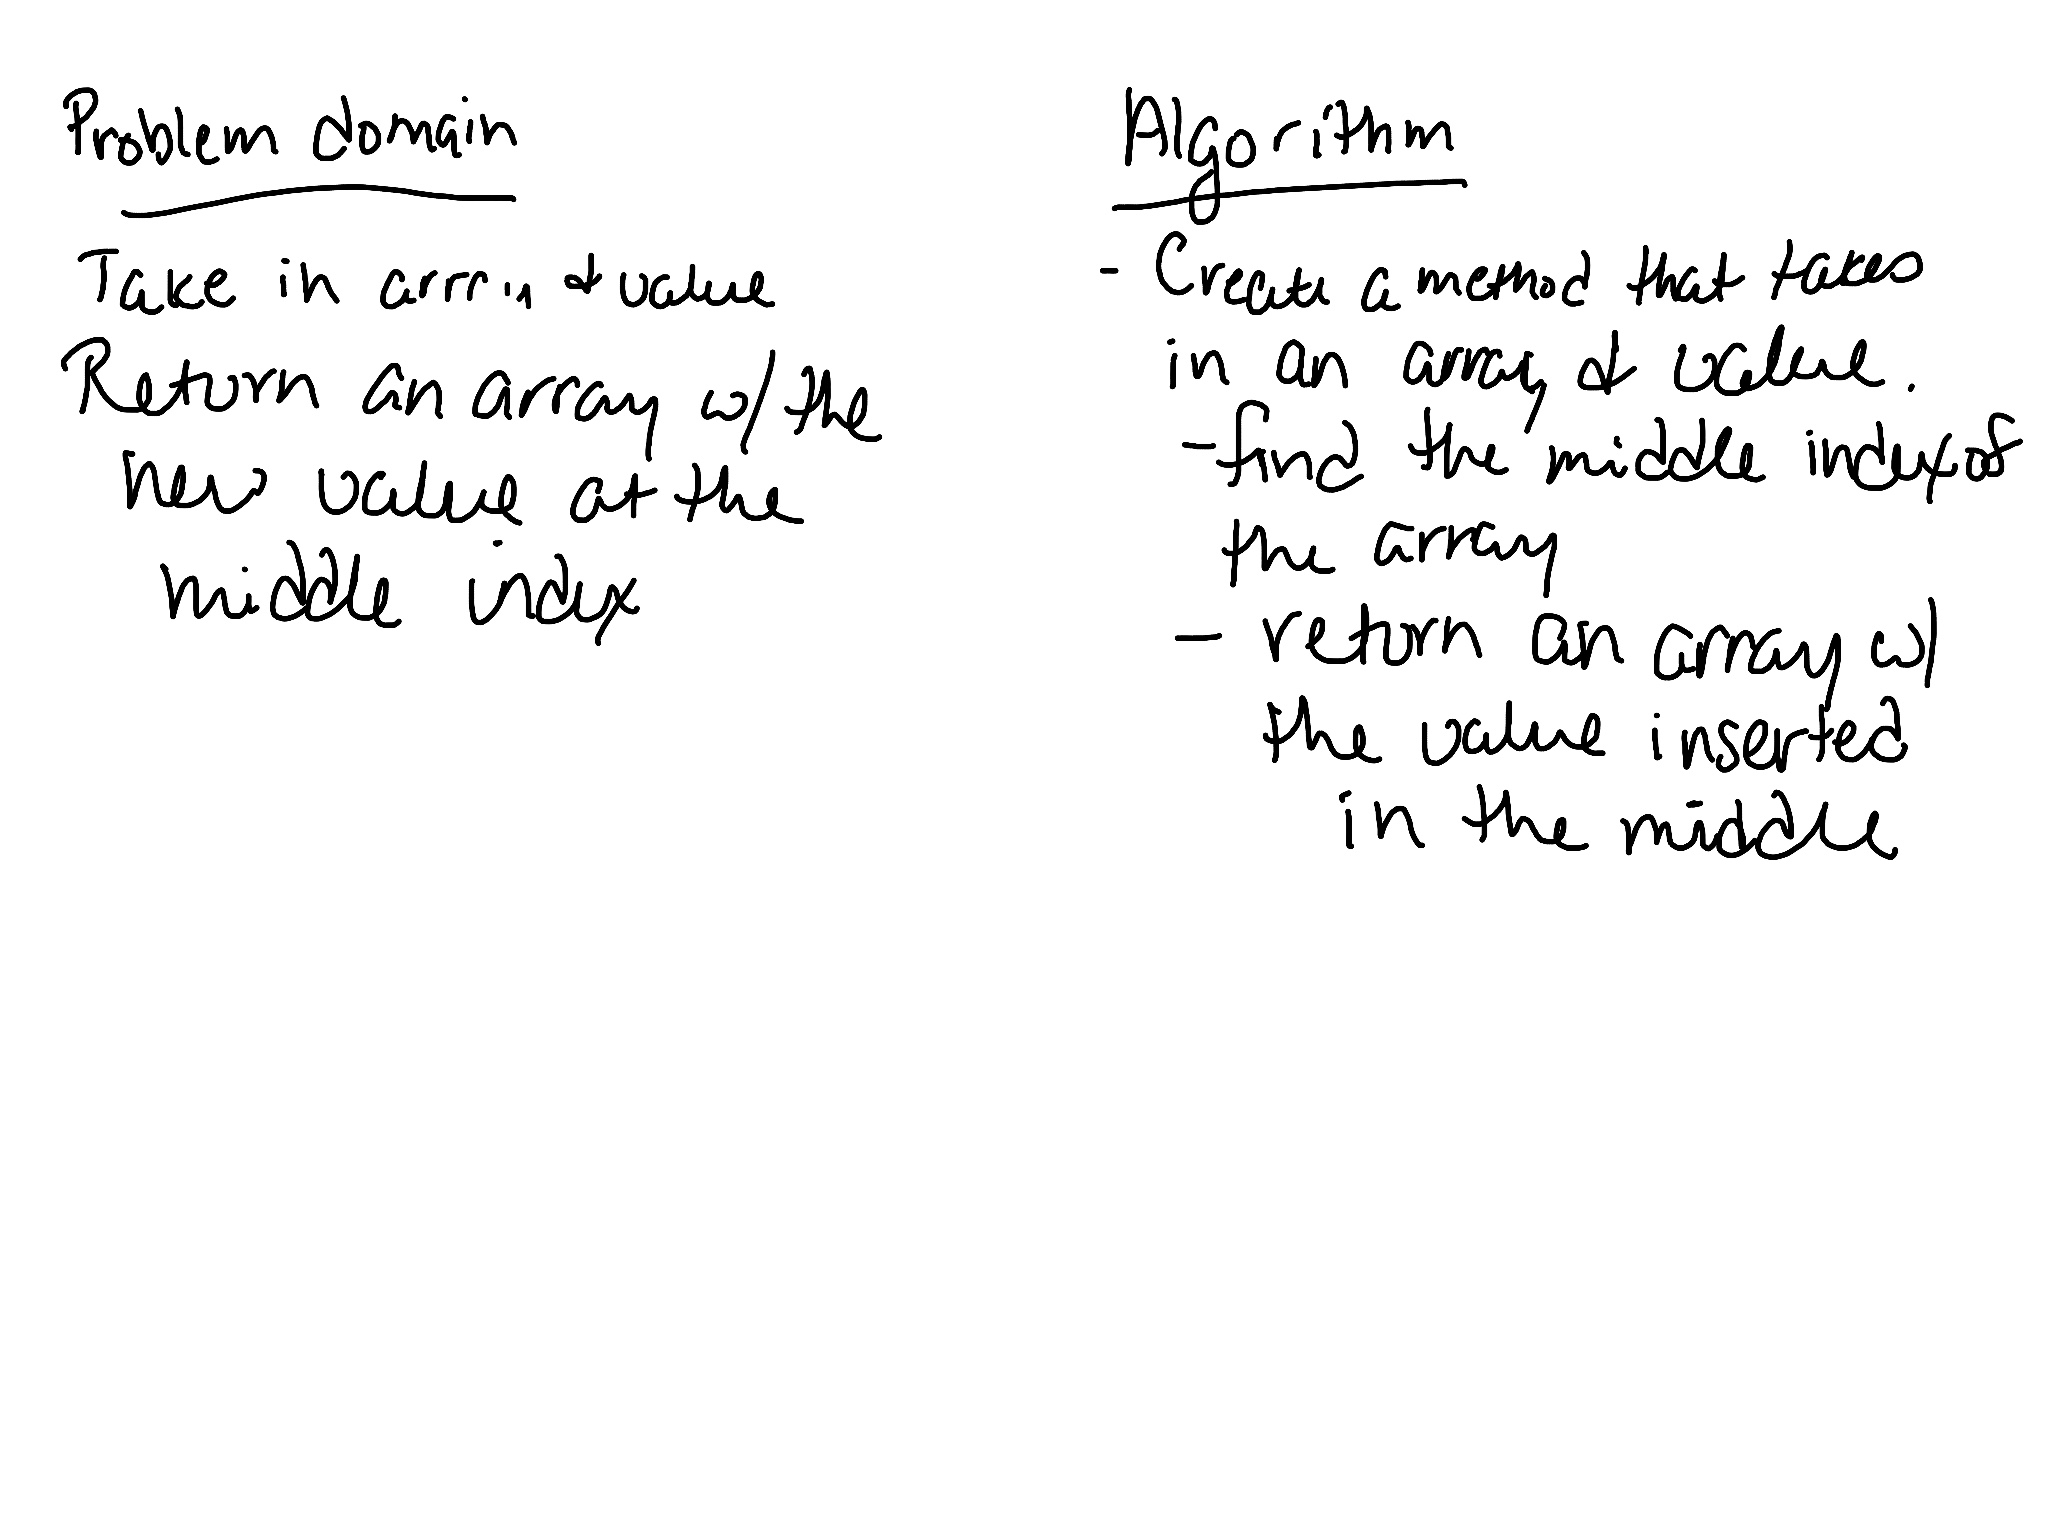 Problem domain
Take in & value
Return an array w/ the
new value at the
middle index
Algorithm
- Create a method that takes
in an array & value.
- find the middle index of
the array
- return an array w/
the value inserted
in the middle